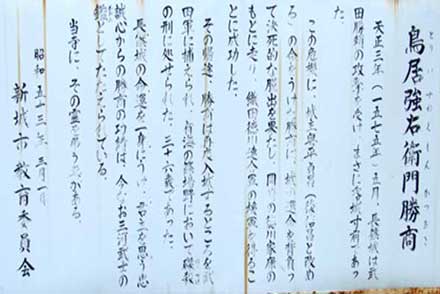 鳥居強右衛門勝商
とりいすねえもんかつあき
天正三年(一五七五年)五月、長篠城は武
田勝頼の攻撃を受け、まさに落城寸前であっ
た。
この危機に、城主奥平貞昌(後信昌と改め
る)の命をうけた勝商は、城の運命を背負っ
て決死的な脱出を果たし、岡崎の徳川家康の
もとに走り、織田徳川連合軍の援軍を得るこ
とに成功した。
その帰途、勝商は再度入城するところを武
田軍に捕えられ、有海の篠場野において磔殺
の刑に処せられた。三十六歳であった。
長篠城の命運を一身にうけ、君主を思う忠
誠心からの勝商の功績は、今なお三河武士の
鑑としてたたえられている。
当寺に、その霊を弔う墓がある。
昭和五十三年三月一日
新城市教育委員会